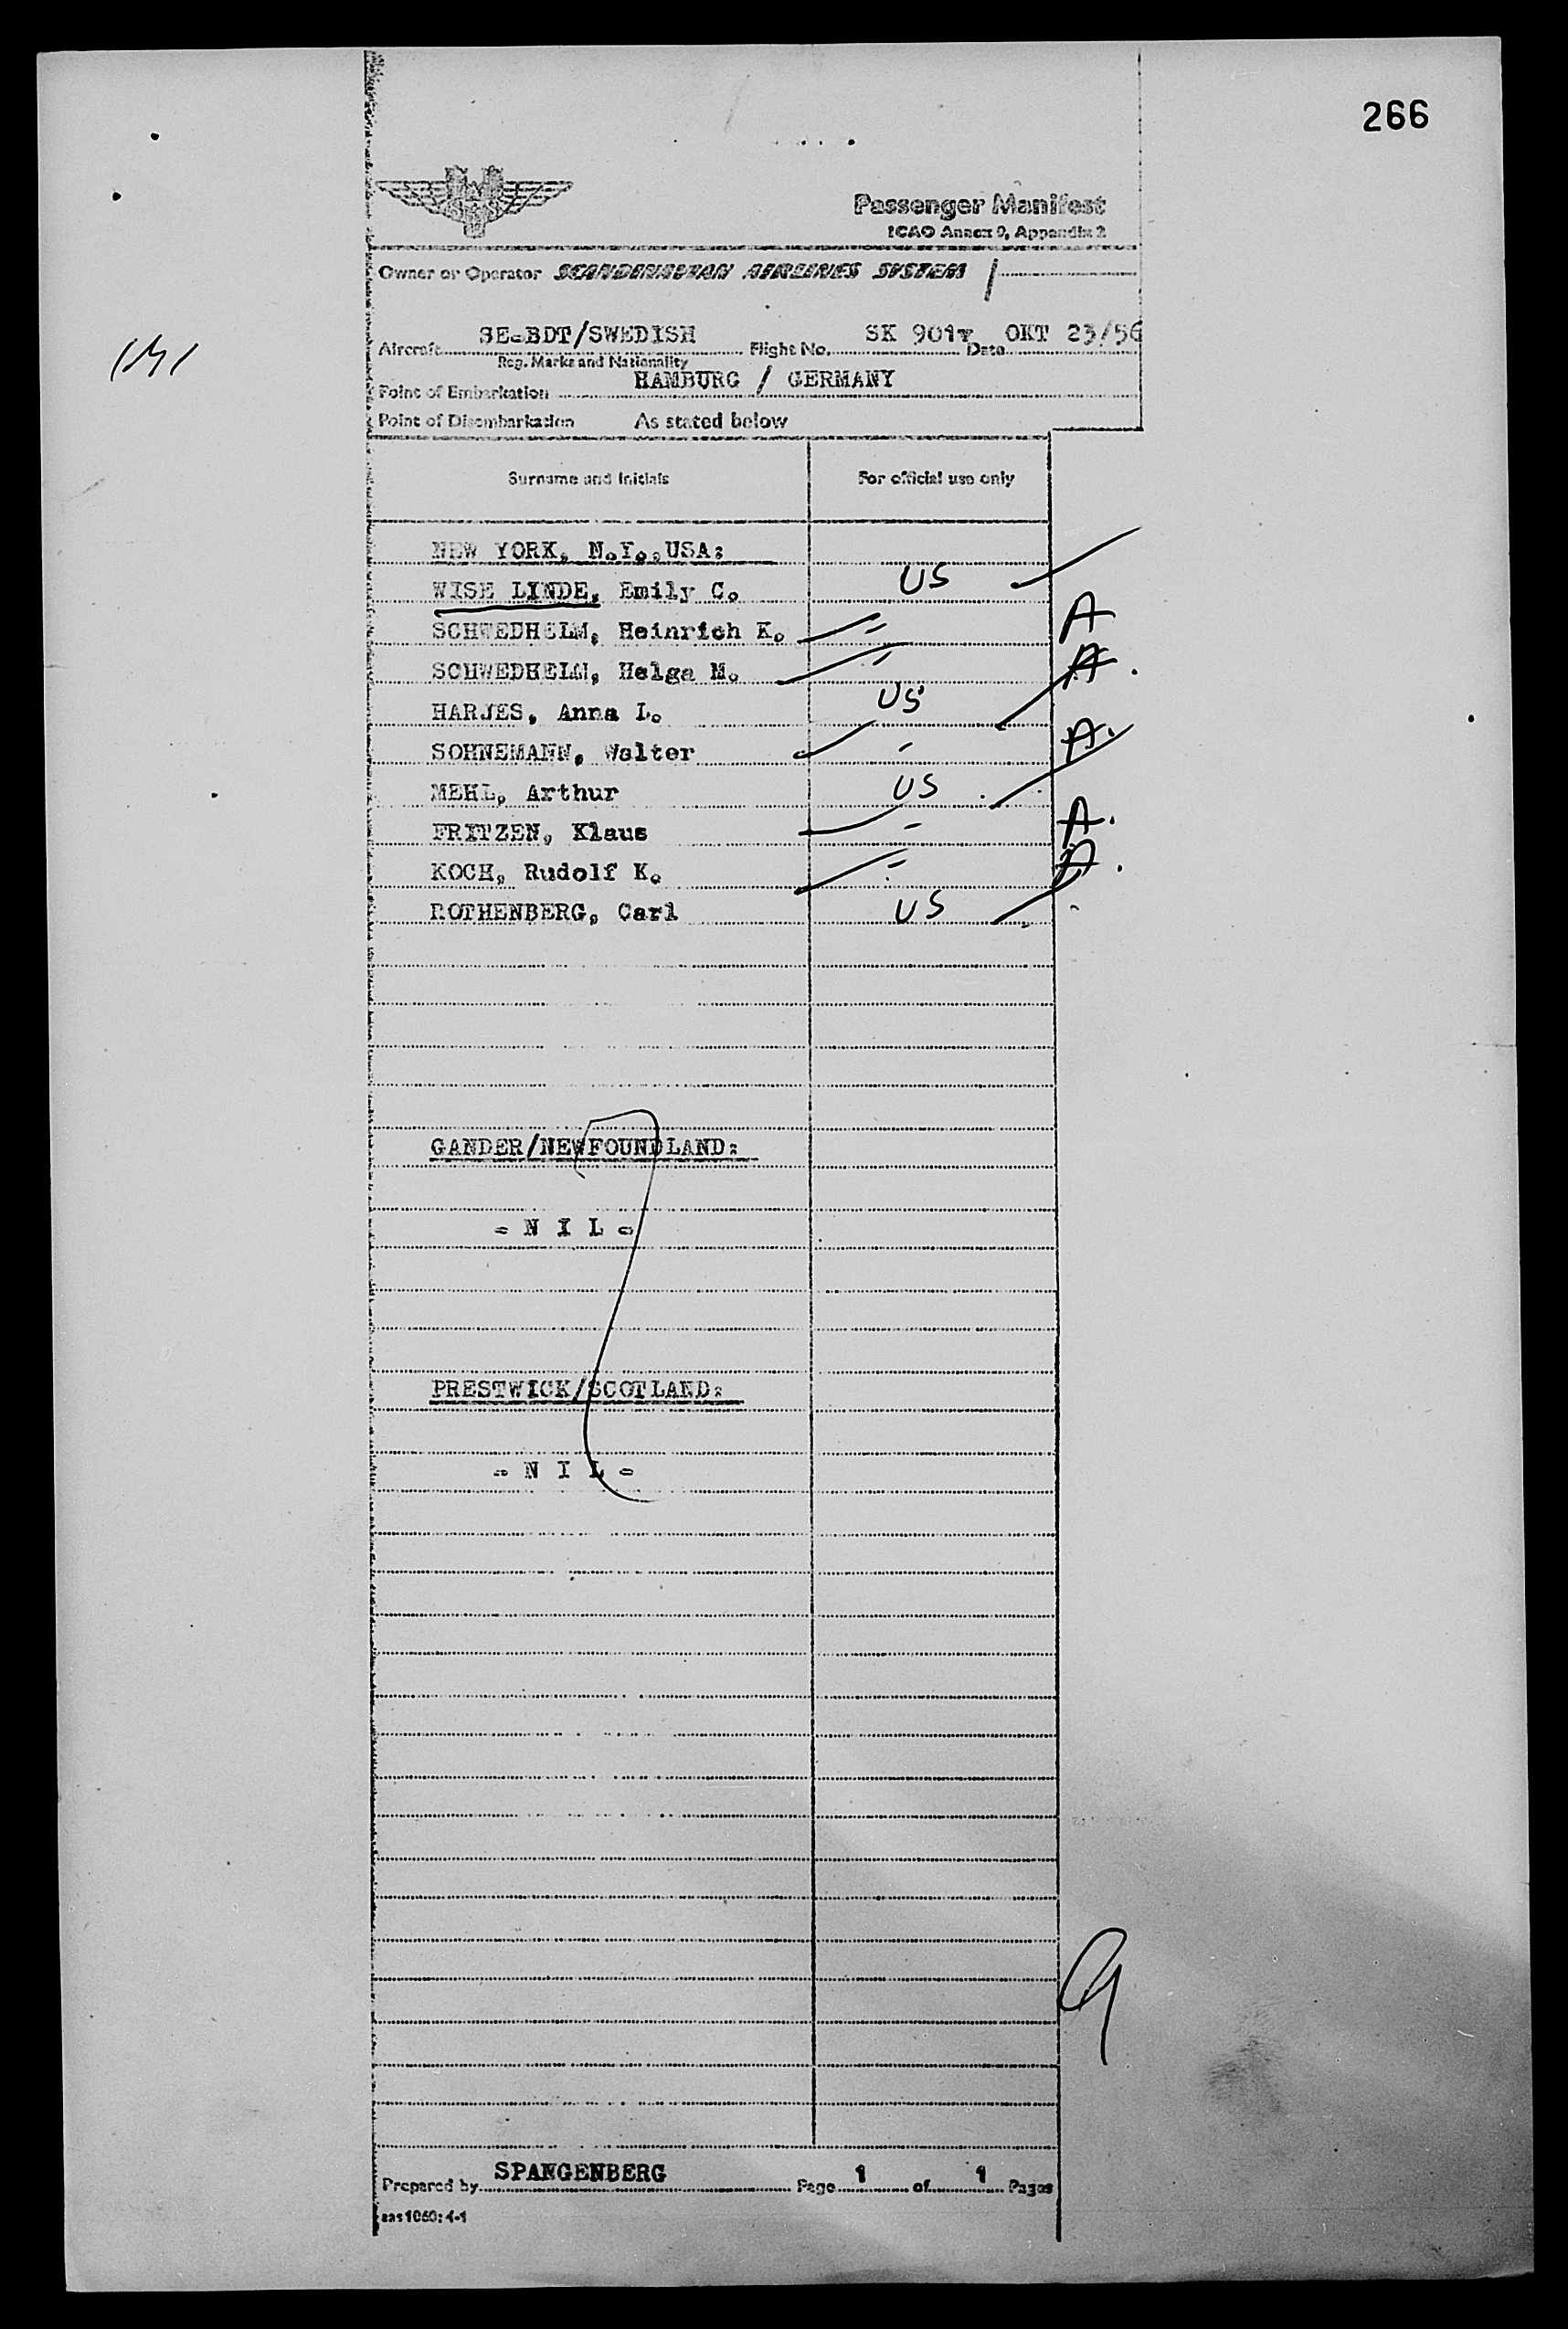 266
Passenger Manifest
ICAO Annex 9, Appendix 2
Owner or Operator SCANDINAVIAN AIRLINES SYSTEM
Aircraft SE-BDT/SWEDISH Flight No. SK 901 Date OKT 23/56
Reg. Marks and Nationality
Point of Embarkation HAMBURG / GERMANY
Point of Disembarkation As stated below
Surname and initials For official use only
NEW YORK, N.Y.,USA:
WISE LINDE, Emily C. US
SCHWEDHELM, Heinrich K. A
SCHWEDHELM, Helga M. A.
HARJES, Anna L. US
SOHNEMANN, Walter A.
MEHL, Arthur US
FRITZEN, Klaus A.
KOCH, Rudolf K. A.
ROTHENBERG, Carl US
GANDER/NEWFOUNDLAND:
- N I L -
PRESTWICK/SCOTLAND:
- N I L -
9
Prepared by SPANGENBERG Page 1 of 1 Pages
sas 1060: 4-1